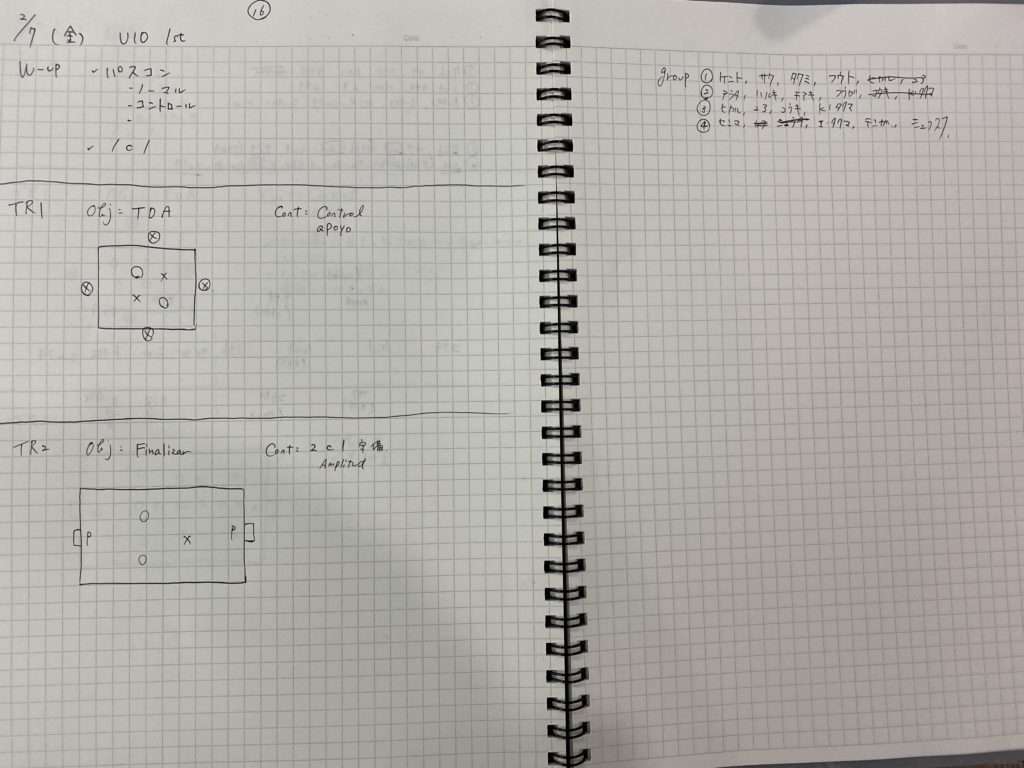 16
2/7 (金) U10 1st
Date
W-up ✓パスコン
-ノーマル
-コントロール
-
✓ 1 c 1
TR1 Obj: TDA Cont: Control
apoyo
TR2 Obj: Finalizar Cont: 2 c 1 守備
Amplitud
P P
Date
group ① ケント, サク, タクミ, フウト,
② アラタ, ハルキ, チアキ,
③ ヒカル, コウキ, Kタクマ
④